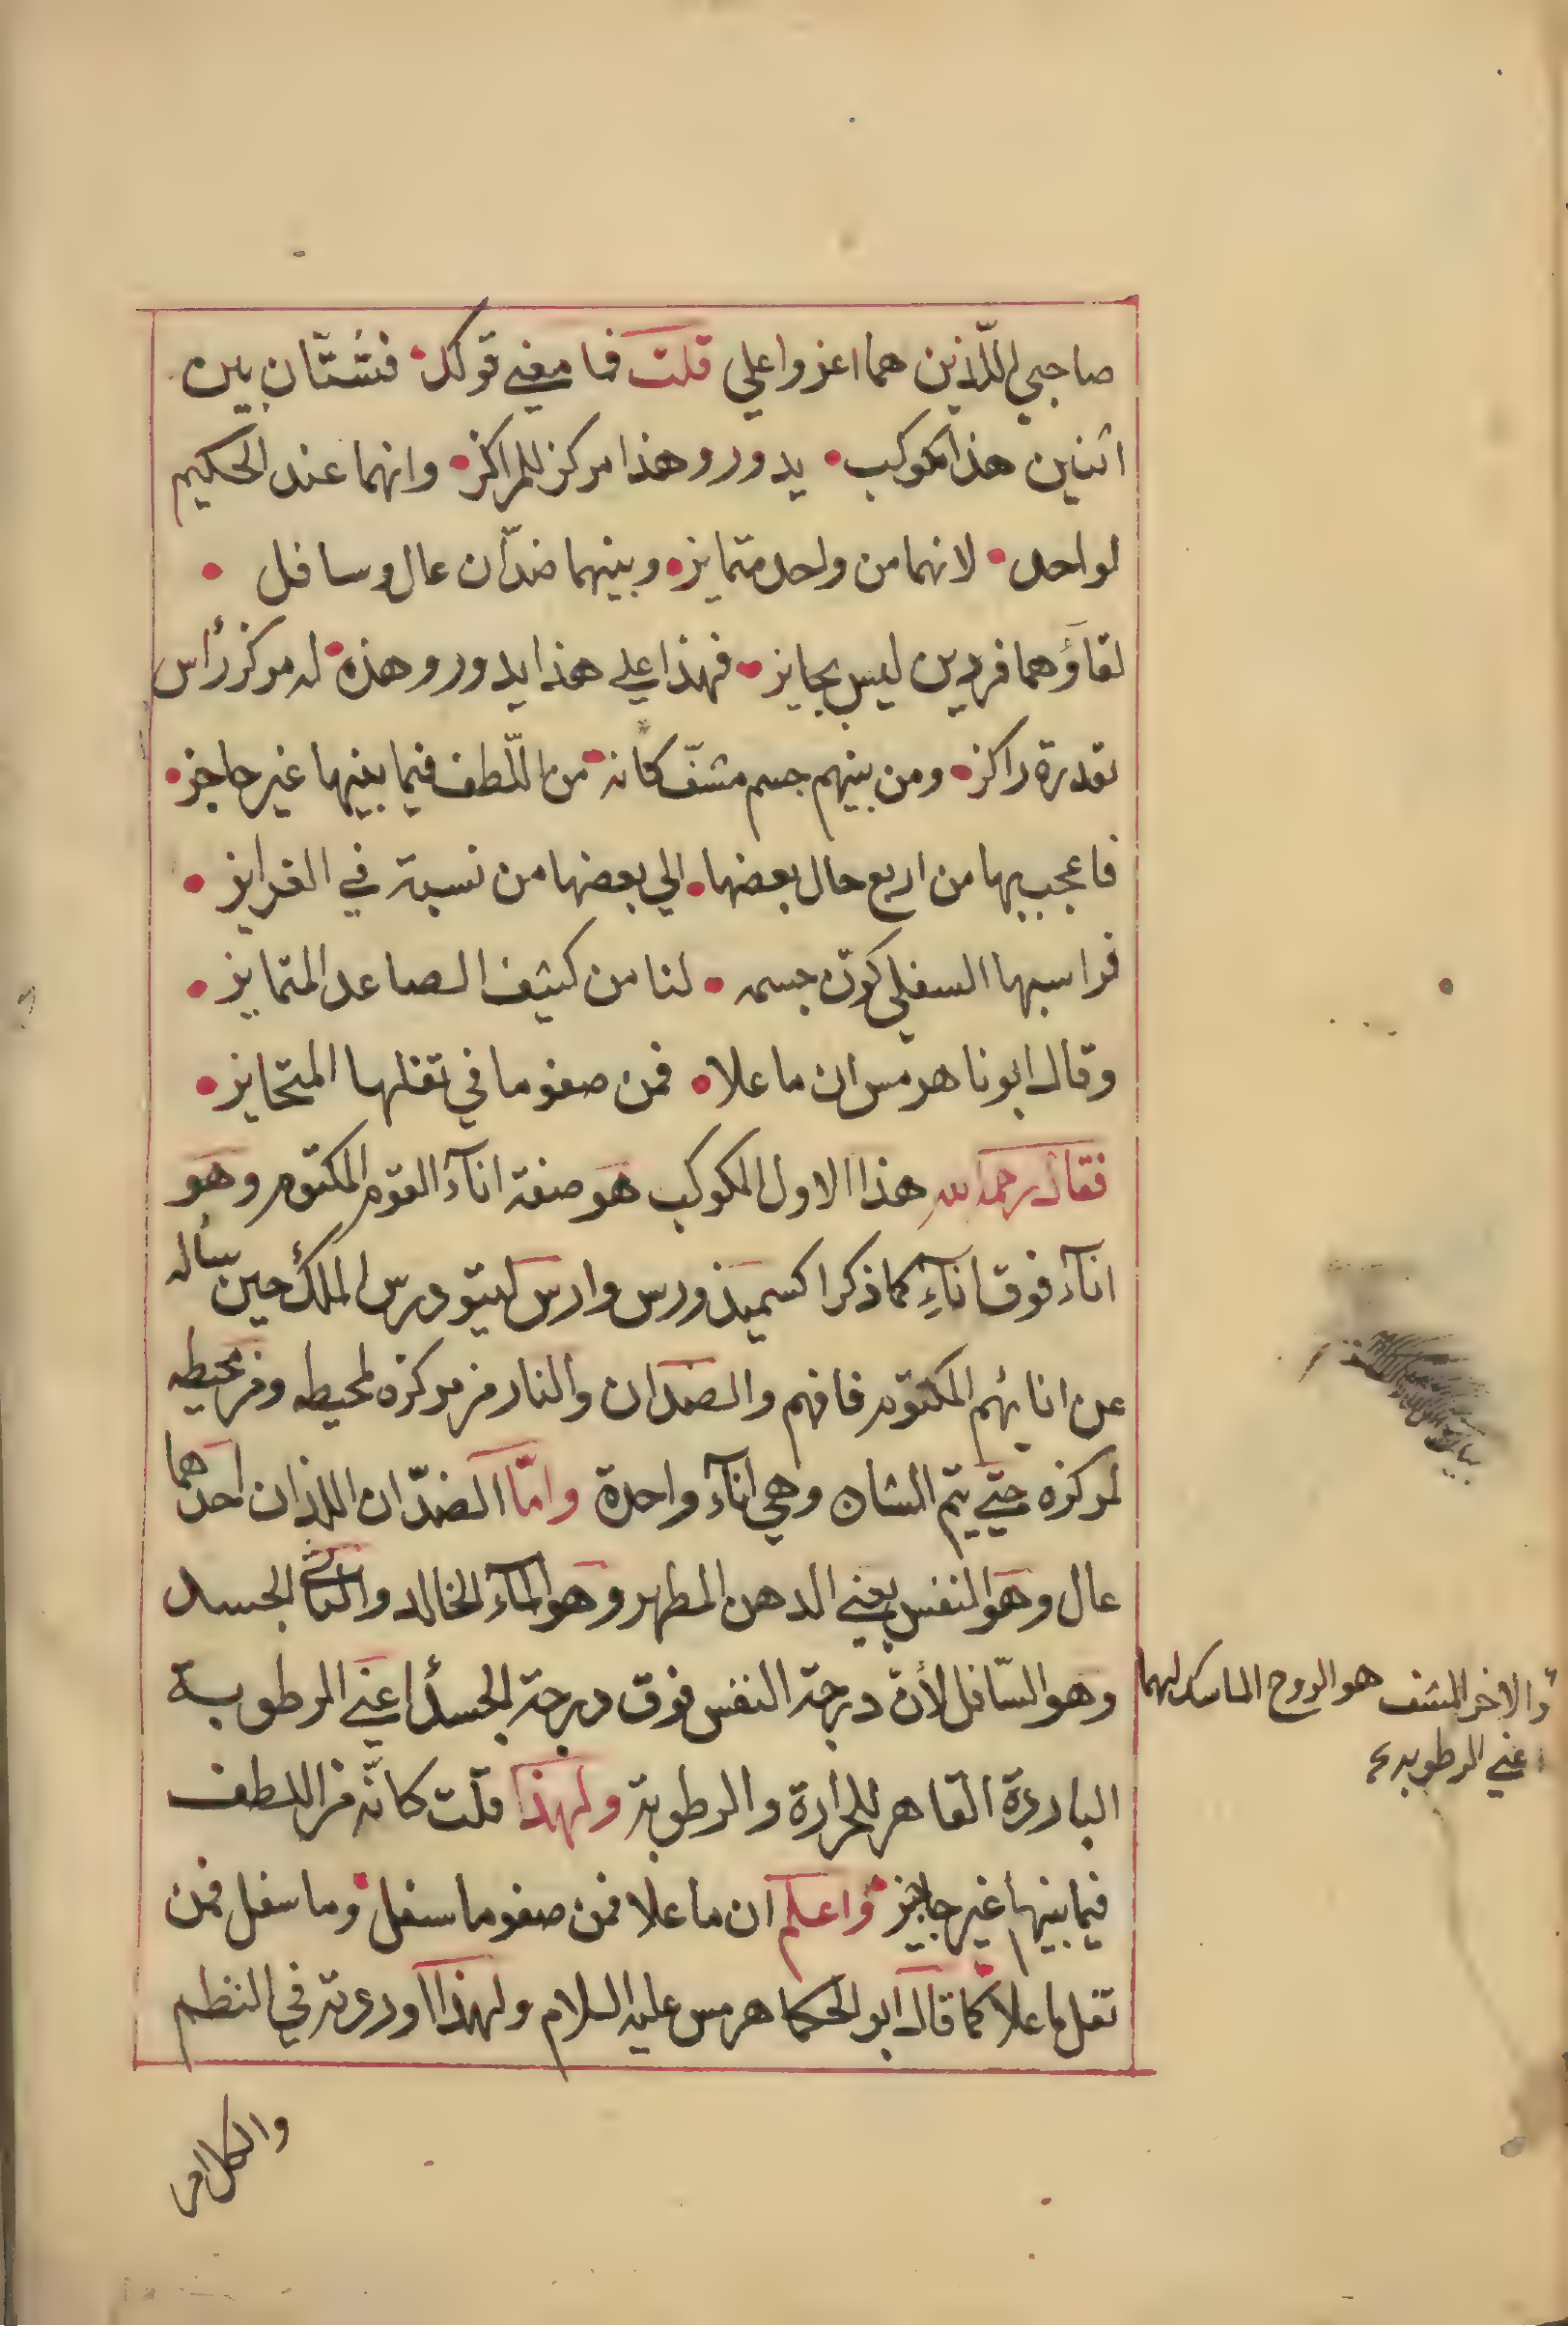 صاحبي اللّذين هما اعزوا علي قلت فما معني قولك فشتّان بين
اثنين هذا مكوكب يدور وهذا مركز للمراكز وانهما عند الحكيم
لواحد لانهما من واحد متمايز وبينهما ضدّان عال وسافل
لقاؤهما فردين ليس بجايز فهذا علي هذا يدور وهذة له مركز رأس
بقدرة راكز ومن بينهم جسم مشفّ كانه من اللّطف فيما بينها غير حاجز
فاعجب بها من اربع حال بعضها الي بعضها من نسبة في الغرايز
فراسبها السفلي كوّن جسمه لنا من كثيف الصاعد المتمايز
وقال ابونا هرمس ان ما علا فمن صفو ما في تفلها المتحايز
فقال رحمه الله هذا الاول المكوكب هو صفة انآء القوم المكتوم وهو
انآء فوق انآءٍ كما ذكر اكسميذورس وارس لتيودرس الملك حين سأله
عن انايهم المكتوم فافهم والضدان والنار من مركزه لمحيطه ومن محيطه
لمركزه حتي يتم الشان وهي انآء واحدة وامّا الضدّان اللذان احدهما
عال وهو النفس يعني الدهن المطهر وهو المآء الخالد والثاني الجسد
وهو السّافل لأن درجة النفس فوق درجة الجسد اعني الرطوبة
الباردة القاهر للحرارة والرطوبة ولهذا قلت كانّه من اللطف
فيما بينها غير حاجز واعلم ان ما علا فمن صفو ما سفل وما سفل فمن
تفل ما علا كما قال ابو الحكما هرمس عليه السلام ولهذا اوردته في النظم
والاخر المشف هو الروح الماسك لهما
اعني الرطوبه
والكلام